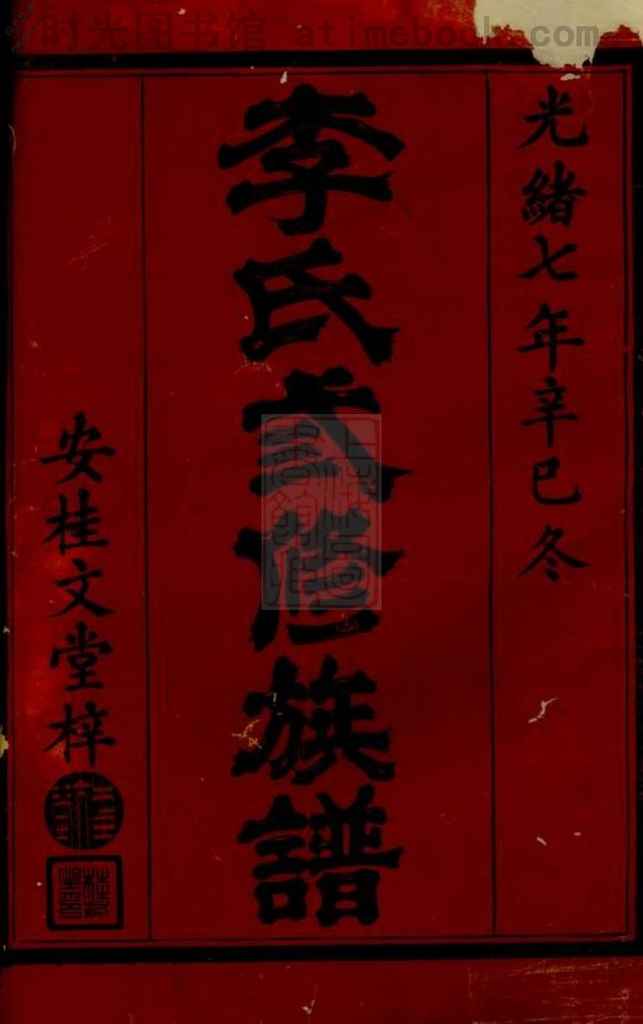 时光图书馆 atimebook.com
光緒七年辛巳冬
李氏弍修族譜
安桂文堂梓